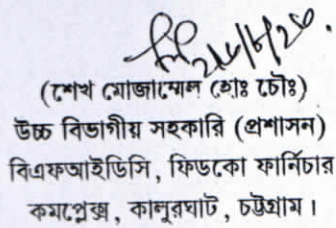 (শেখ মোজাম্মেল হোঃ চৌঃ)
উচ্চ বিভাগীয় সহকারি (প্রশাসন)
বিএফআইডিসি, ফিডকো ফার্নিচার
কমপ্লেক্স, কালুরঘাট, চট্টগ্রাম।